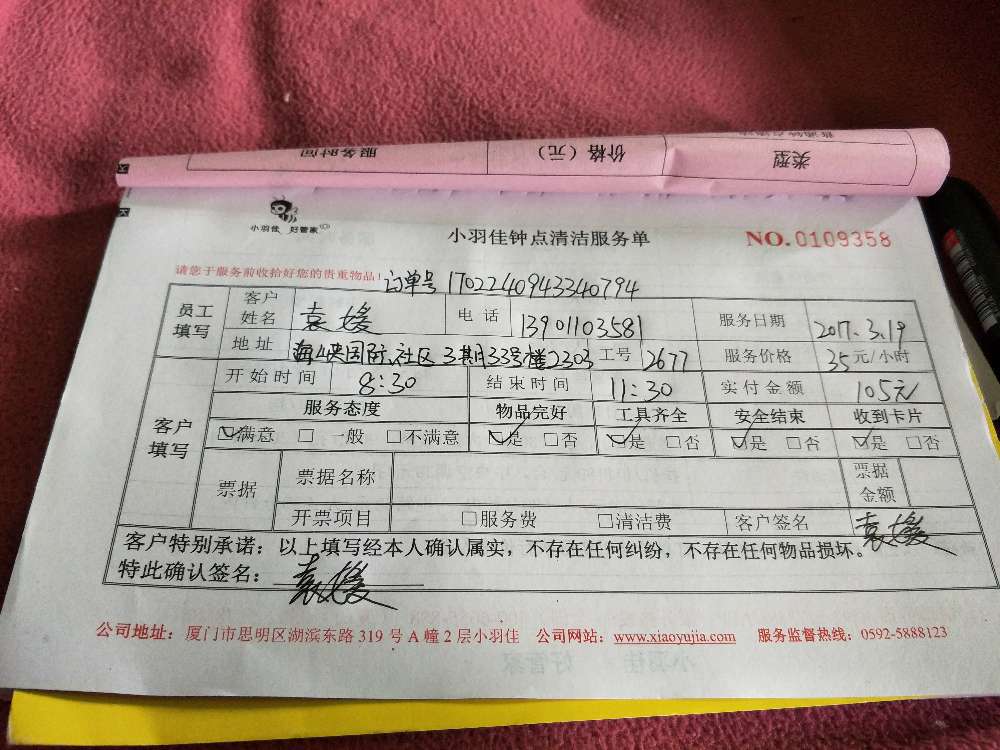 服务时间 价格（元） 类型
小羽佳 好管家
小羽佳钟点清洁服务单
NO.0109358
请您于服务前收拾好您的贵重物品！
订单号 1702240943340794
员工填写 客户姓名 袁媛 电话 13901103581 服务日期 2017.3.19
地址 海峡国际社区3期33号楼2303 工号 2677 服务价格 35元/小时
客户填写 开始时间 8:30 结束时间 11:30 实付金额 105元
服务态度 物品完好 工具齐全 安全结束 收到卡片
☑满意 □一般 □不满意 ☑是 □否 ☑是 □否 ☑是 □否 ☑是 □否
票据 票据名称 票据金额
开票项目 □服务费 □清洁费 客户签名 袁媛
客户特别承诺：以上填写经本人确认属实，不存在任何纠纷，不存在任何物品损坏。
特此确认签名：袁媛
公司地址：厦门市思明区湖滨东路 319 号 A 幢 2 层小羽佳 公司网站：www.xiaoyujia.com 服务监督热线：0592-5888123
小羽佳 好管家